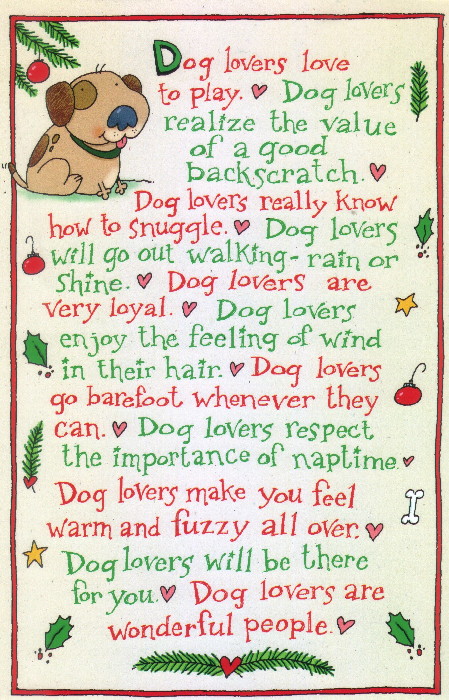 Dog lovers love
to play. Dog lovers
realize the value
of a good
backscratch.
Dog lovers really know
how to snuggle. Dog lovers
will go out walking-rain or
shine. Dog lovers are
very loyal. Dog lovers
enjoy the feeling of wind
in their hair. Dog lovers
go barefoot whenever they
can. Dog lovers respect
the importance of naptime.
Dog lovers make you feel
warm and fuzzy all over.
Dog lovers will be there
for you. Dog lovers are
wonderful people.